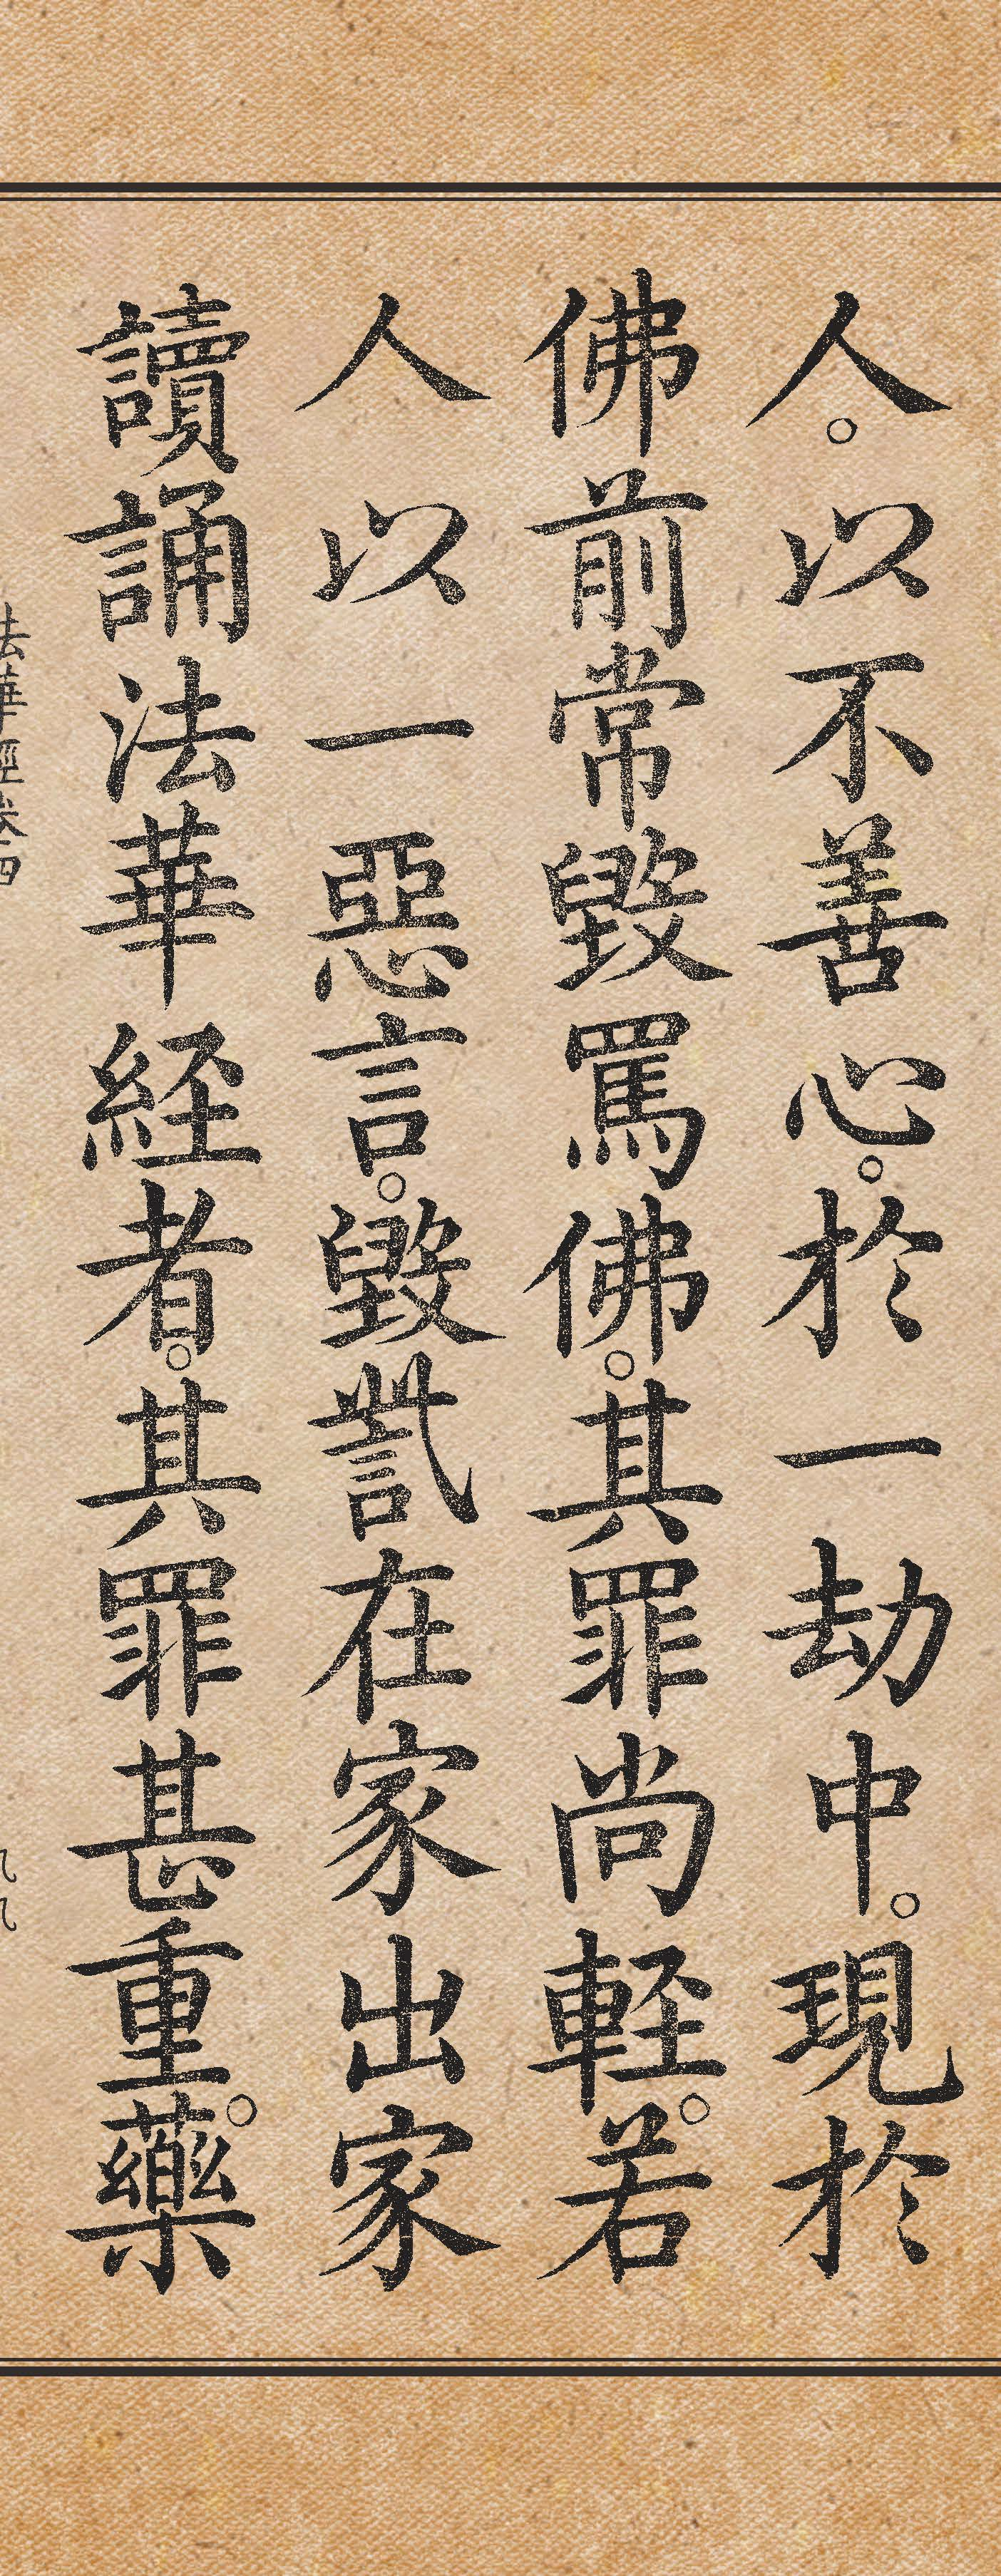 人。以不善心。於一劫中。現於
佛前常毀罵佛。其罪尚軽。若
人以一惡言。毀訾在家出家
讀誦法華経者。其罪甚重。藥
法華經卷四